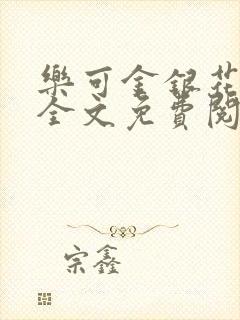 樂可金銀花
全文免費閱
宗鑫